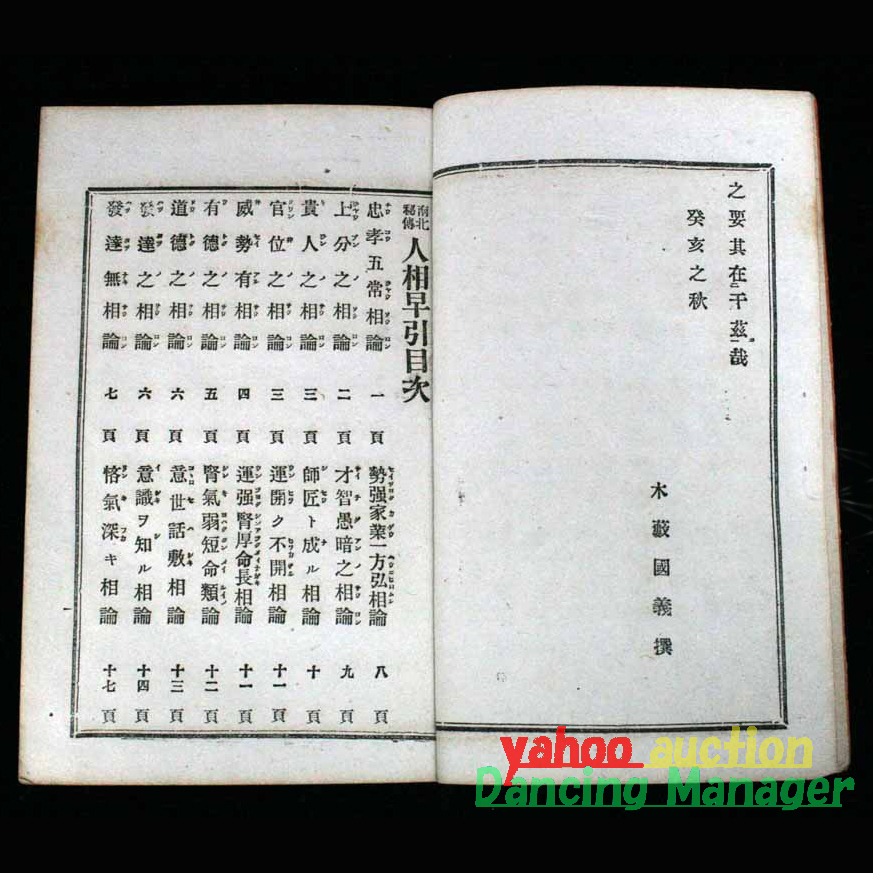 之要其在于茲哉
癸亥之秋
木蔽國義撰
南北秘傳 人相早引目次
忠孝五常相論 一頁
上分之相論 二頁
貴人之相論 三頁
官位之相論 三頁
威勢有相論 四頁
有德之相論 五頁
道德之相論 六頁
發達之相論 六頁
發達無相論 七頁
勢强家業一方弘相論 八頁
才智愚暗之相論 九頁
師匠ト成ル相論 十頁
運開ク不開相論 十一頁
運强腎厚命長相論 十一頁
腎氣弱短命類論 十二頁
意世話敷相論 十三頁
意識ヲ知ル相論 十四頁
悋氣深キ相論 十七頁
yahoo auction
Dancing Manager